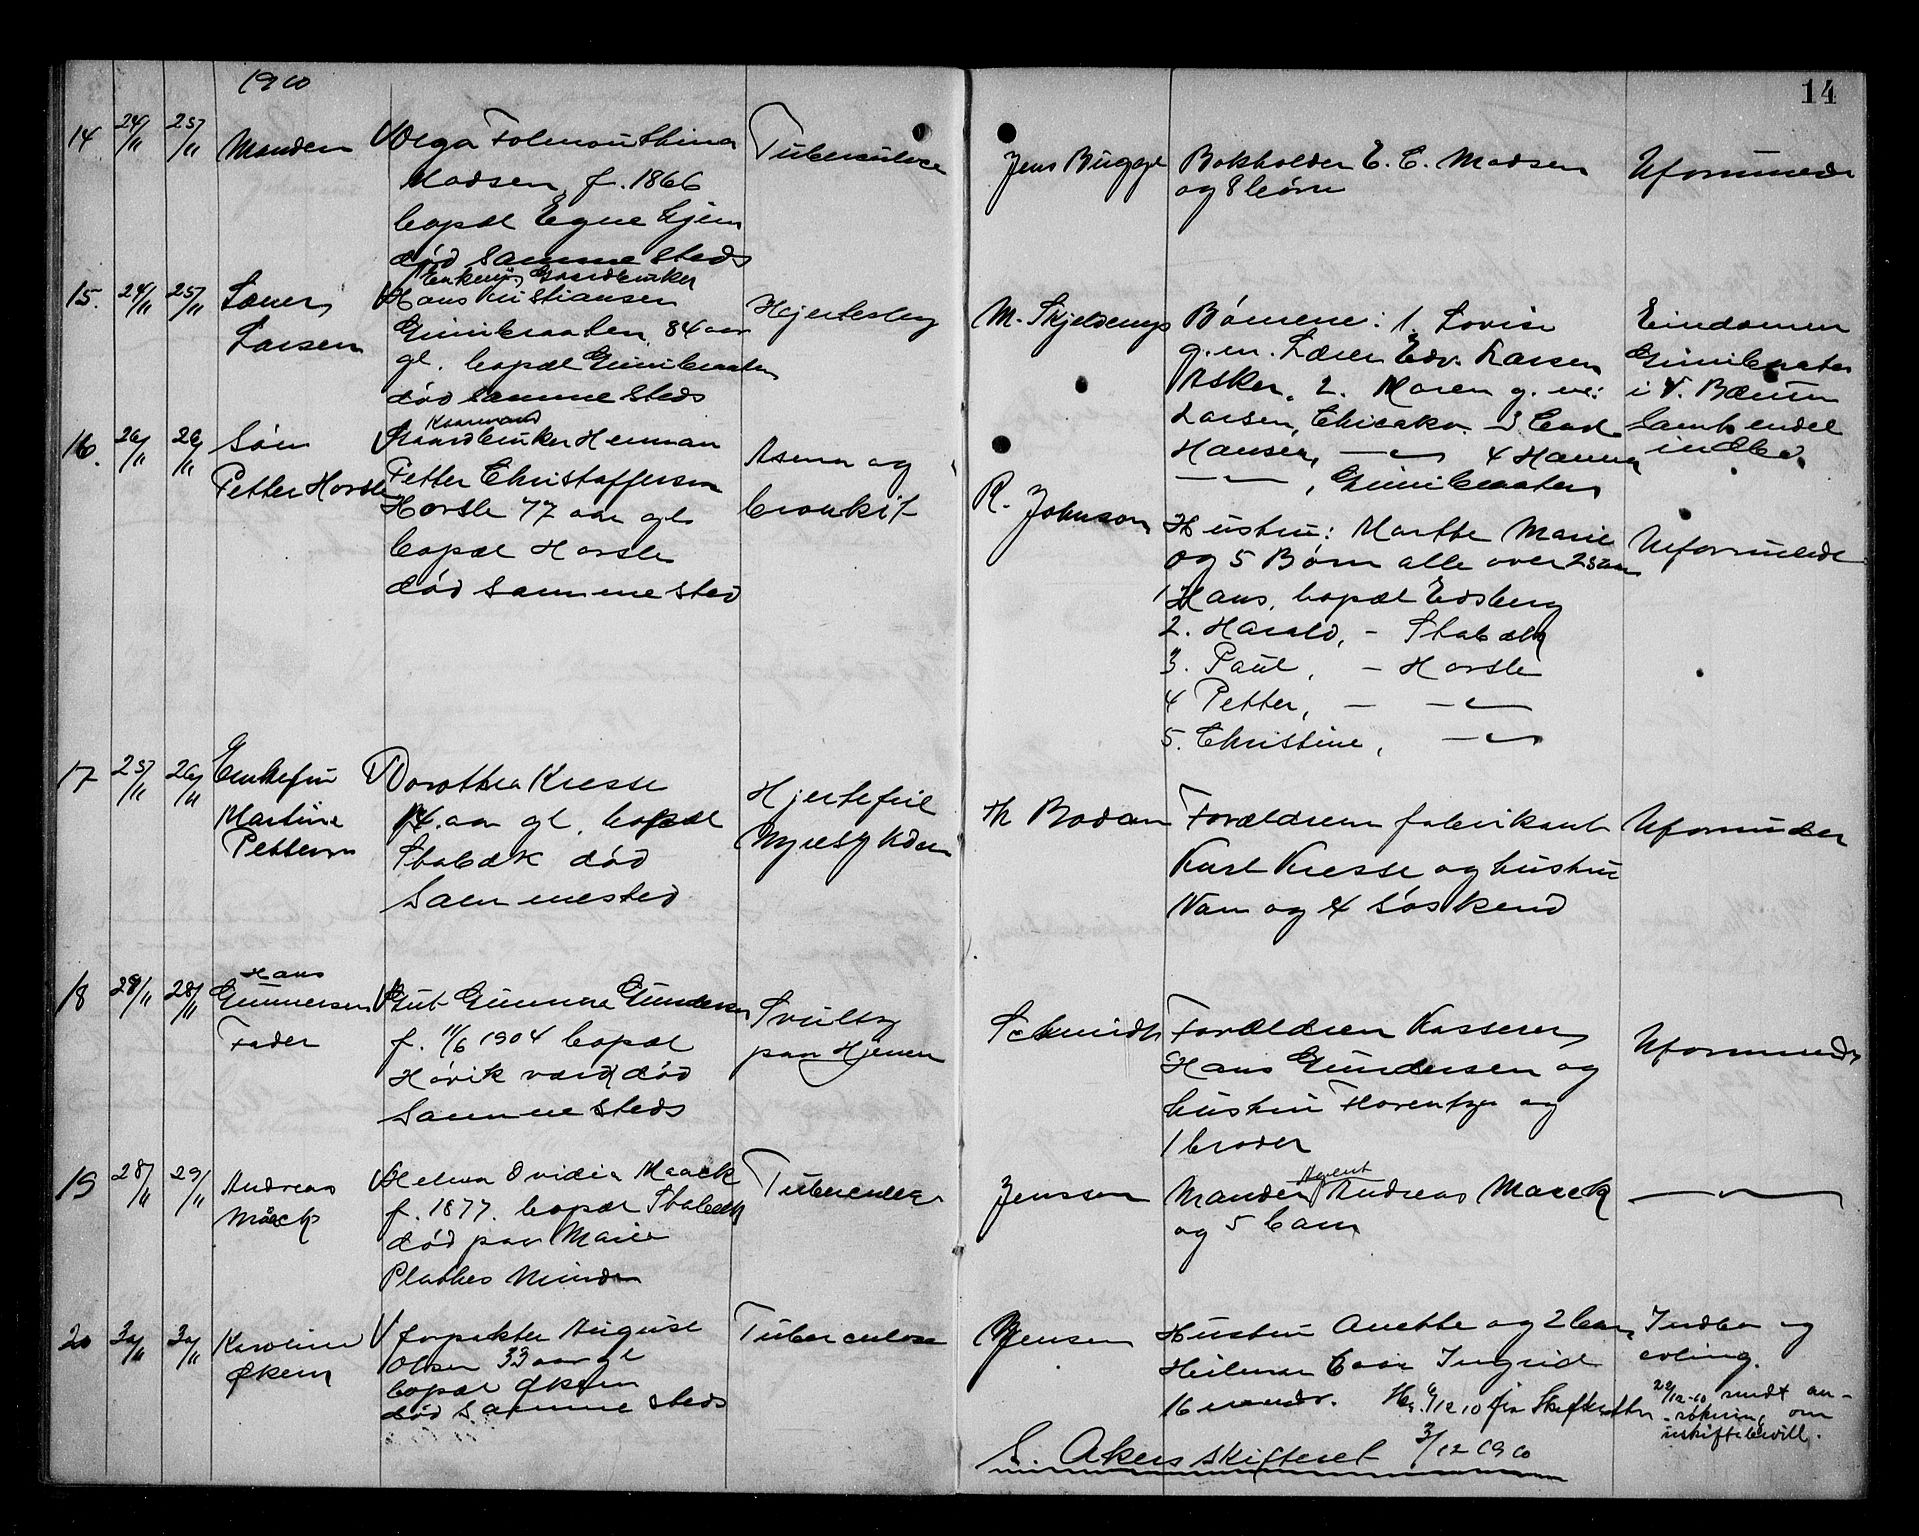 1910
14
14 24/11 25/11 Manden
Olga Tolmou Thina
Madsen, f. 1866
bopæl Egne Hjem
død sammesteds
Tuberculose
Jens Bugge
Bokholder E. C. Madsen
og 8 børn
Uformuende
15. 24/11 25/11 Lærer
Larsen
Enkem. Gaardbruker
Hans Kristiansen
84 aar
gl. bopæl
død sammesteds
Hjerteslag
M. Skjelderup
Børnene: 1. Lovise
g. m. Lærer Edv. Larsen
Asker, 2. Maren g. m.
Larsen, Chicako. 3 Carl
Hansen, —"— 4 Hanna
—"—,
Eiendommen
i V. Bærum
Samt endel
indbo.
16. 26/11 26/11 Søn
Petter Horsle
Kaarmand
Gaardbruker Herman
Petter Christoffersen
Horsle 77 aar gl.
bopæl Horsle
død sammested
Asma og
bronkit
R. Johnson
Hustru: Marthe Marie
og 5 Børn alle over 25 aar
1 Hans, bopæl Edsberg
2. Harald, - Stabæk
3. Paul, - Horsle
4 Petter, - —"—
5. Christine, —"—
Uformuende
17 25/11 26/11 Enkefru
Martine
Petterson
Dorothea Kresse
14 aar gl. bopæl
Stabæk død
Sammested
Hjertefeil
Nyresykdom
Th Bodom
Forældrene fabrikant
Karl Kresse og hustru
og 4 søskend
Uformuende
18 28/11 28/11 Hans
Gunnersen
Fader
Gut Gunnar Gundersen
f. 11/6 1904 bopæl
Høvik værk død
Sammesteds
Svulst
paa Hjernen
Schmidt
Forældrene Kasserer
Hans Gundersen og
hustru Florentze og
1 broder
Uformuende
19 28/11 29/11 Andreas
Maack
Helma Ovidia Maack
f. 1877. bopæl Stabæk
død paa Marie
Plathes Minde
Tuberculose
Jenssen
Manden Agent Andreas Maack
og 5 barn
—"—
20 30/11 30/11 Karoline
Økern
forpakter August
Olsen 33 aar gl
bopæl Økern
død sammesteds
Tuberculose
Jensen
Hustru Anette og 2 barn
Heilmar 6 aar Ingrid
16 maandr.
Indbo og
avling.
22/12-10 sendt an-
søkning om
uskiftebevill.
S. Akers skifteret 3/12 1910